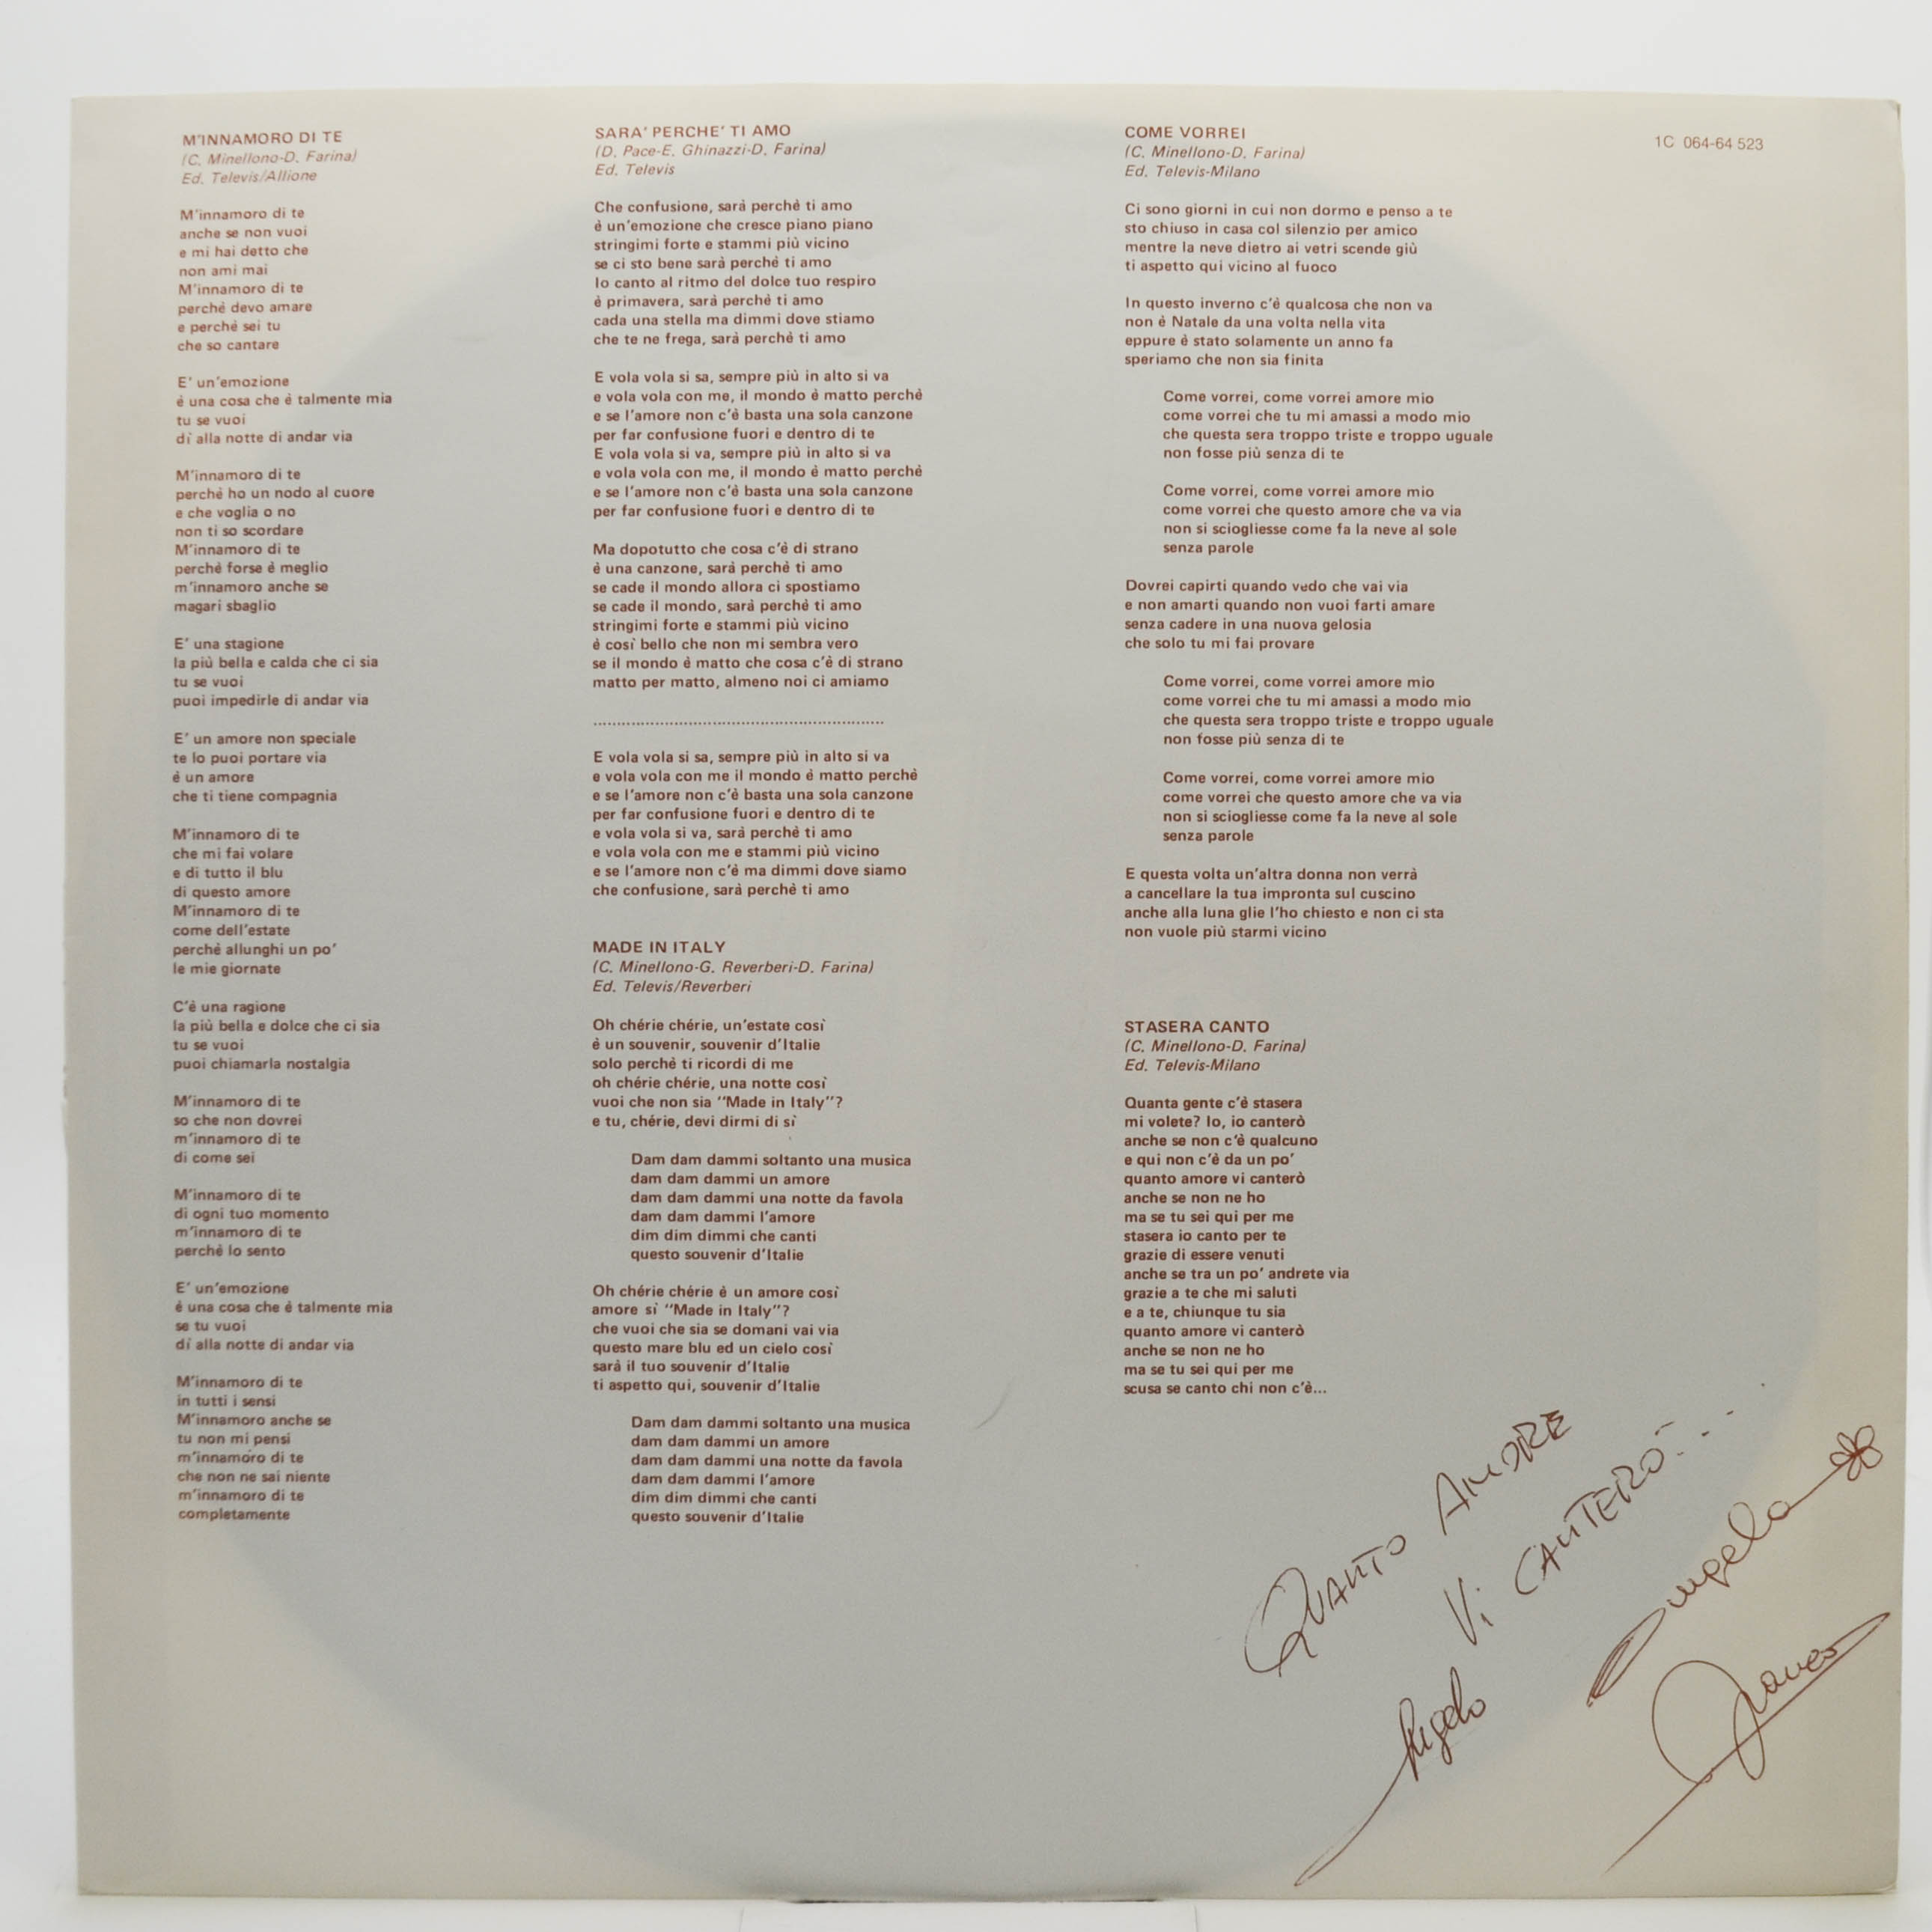 M'INNAMORO DI TE
(C. Minellono-D. Farina)
Ed. Televis/Allione
M'innamoro di te
anche se non vuoi
e mi hai detto che
non ami mai
M'innamoro di te
perchè devo amare
e perchè sei tu
che so cantare
E' un'emozione
è una cosa che è talmente mia
tu se vuoi
dì alla notte di andar via
M'innamoro di te
perchè ho un nodo al cuore
e che voglia o no
non ti so scordare
M'innamoro di te
perchè forse è meglio
m'innamoro anche se
magari sbaglio
E' una stagione
la più bella e calda che ci sia
tu se vuoi
puoi impedirle di andar via
E' un amore non speciale
te lo puoi portare via
è un amore
che ti tiene compagnia
M'innamoro di te
che mi fai volare
e di tutto il blu
di questo amore
M'innamoro di te
come dell'estate
perchè allunghi un po'
le mie giornate
C'è una ragione
la più bella e dolce che ci sia
tu se vuoi
puoi chiamarla nostalgia
M'innamoro di te
so che non dovrei
m'innamoro di te
di come sei
M'innamoro di te
di ogni tuo momento
m'innamoro di te
perchè lo sento
E' un'emozione
è una cosa che è talmente mia
se tu vuoi
dì alla notte di andar via
M'innamoro di te
in tutti i sensi
M'innamoro anche se
tu non mi pensi
m'innamoro di te
che non ne sai niente
m'innamoro di te
completamente
SARA' PERCHE' TI AMO
(D. Pace-E. Ghinazzi-D. Farina)
Ed. Televis
Che confusione, sarà perchè ti amo
è un'emozione che cresce piano piano
stringimi forte e stammi più vicino
se ci sto bene sarà perchè ti amo
Io canto al ritmo del dolce tuo respiro
è primavera, sarà perchè ti amo
cada una stella ma dimmi dove stiamo
che te ne frega, sarà perchè ti amo
E vola vola si sa, sempre più in alto si va
e vola vola con me, il mondo è matto perchè
e se l'amore non c'è basta una sola canzone
per far confusione fuori e dentro di te
E vola vola si va, sempre più in alto si va
e vola vola con me, il mondo è matto perchè
e se l'amore non c'è basta una sola canzone
per far confusione fuori e dentro di te
Ma dopotutto che cosa c'è di strano
è una canzone, sarà perchè ti amo
se cade il mondo allora ci spostiamo
se cade il mondo, sarà perchè ti amo
stringimi forte e stammi più vicino
è così bello che non mi sembra vero
se il mondo è matto che cosa c'è di strano
matto per matto, almeno noi ci amiamo
..............................................................
E vola vola si sa, sempre più in alto si va
e vola vola con me il mondo è matto perchè
e se l'amore non c'è basta una sola canzone
per far confusione fuori e dentro di te
e vola vola si va, sarà perchè ti amo
e vola vola con me e stammi più vicino
e se l'amore non c'è ma dimmi dove siamo
che confusione, sarà perchè ti amo
MADE IN ITALY
(C. Minellono-G. Reverberi-D. Farina)
Ed. Televis/Reverberi
Oh chérie chérie, un'estate così
è un souvenir, souvenir d'Italie
solo perchè ti ricordi di me
oh chérie chérie, una notte così
vuoi che non sia "Made in Italy"?
e tu, chérie, devi dirmi di sì
Dam dam dammi soltanto una musica
dam dam dammi un amore
dam dam dammi una notte da favola
dam dam dammi l'amore
dim dim dimmi che canti
questo souvenir d'Italie
Oh chérie chérie è un amore così
amore sì "Made in Italy"?
che vuoi che sia se domani vai via
questo mare blu ed un cielo così
sarà il tuo souvenir d'Italie
ti aspetto qui, souvenir d'Italie
Dam dam dammi soltanto una musica
dam dam dammi un amore
dam dam dammi una notte da favola
dam dam dammi l'amore
dim dim dimmi che canti
questo souvenir d'Italie
COME VORREI
(C. Minellono-D. Farina)
Ed. Televis-Milano
Ci sono giorni in cui non dormo e penso a te
sto chiuso in casa col silenzio per amico
mentre la neve dietro ai vetri scende giù
ti aspetto qui vicino al fuoco
In questo inverno c'è qualcosa che non va
non è Natale da una volta nella vita
eppure è stato solamente un anno fa
speriamo che non sia finita
Come vorrei, come vorrei amore mio
come vorrei che tu mi amassi a modo mio
che questa sera troppo triste e troppo uguale
non fosse più senza di te
Come vorrei, come vorrei amore mio
come vorrei che questo amore che va via
non si sciogliesse come fa la neve al sole
senza parole
Dovrei capirti quando vedo che vai via
e non amarti quando non vuoi farti amare
senza cadere in una nuova gelosia
che solo tu mi fai provare
Come vorrei, come vorrei amore mio
come vorrei che tu mi amassi a modo mio
che questa sera troppo triste e troppo uguale
non fosse più senza di te
Come vorrei, come vorrei amore mio
come vorrei che questo amore che va via
non si sciogliesse come fa la neve al sole
senza parole
E questa volta un'altra donna non verrà
a cancellare la tua impronta sul cuscino
anche alla luna glie l'ho chiesto e non ci sta
non vuole più starmi vicino
STASERA CANTO
(C. Minellono-D. Farina)
Ed. Televis-Milano
Quanta gente c'è stasera
mi volete? Io, io canterò
anche se non c'è qualcuno
e qui non c'è da un po'
quanto amore vi canterò
anche se non ne ho
ma se tu sei qui per me
stasera io canto per te
grazie di essere venuti
anche se tra un po' andrete via
grazie a te che mi saluti
e a te, chiunque tu sia
quanto amore vi canterò
anche se non ne ho
ma se tu sei qui per me
scusa se canto chi non c'è...
1C 064-64 523
QUANTO AMORE
Vi CANTERO'...
Angela
Angelo
Franco